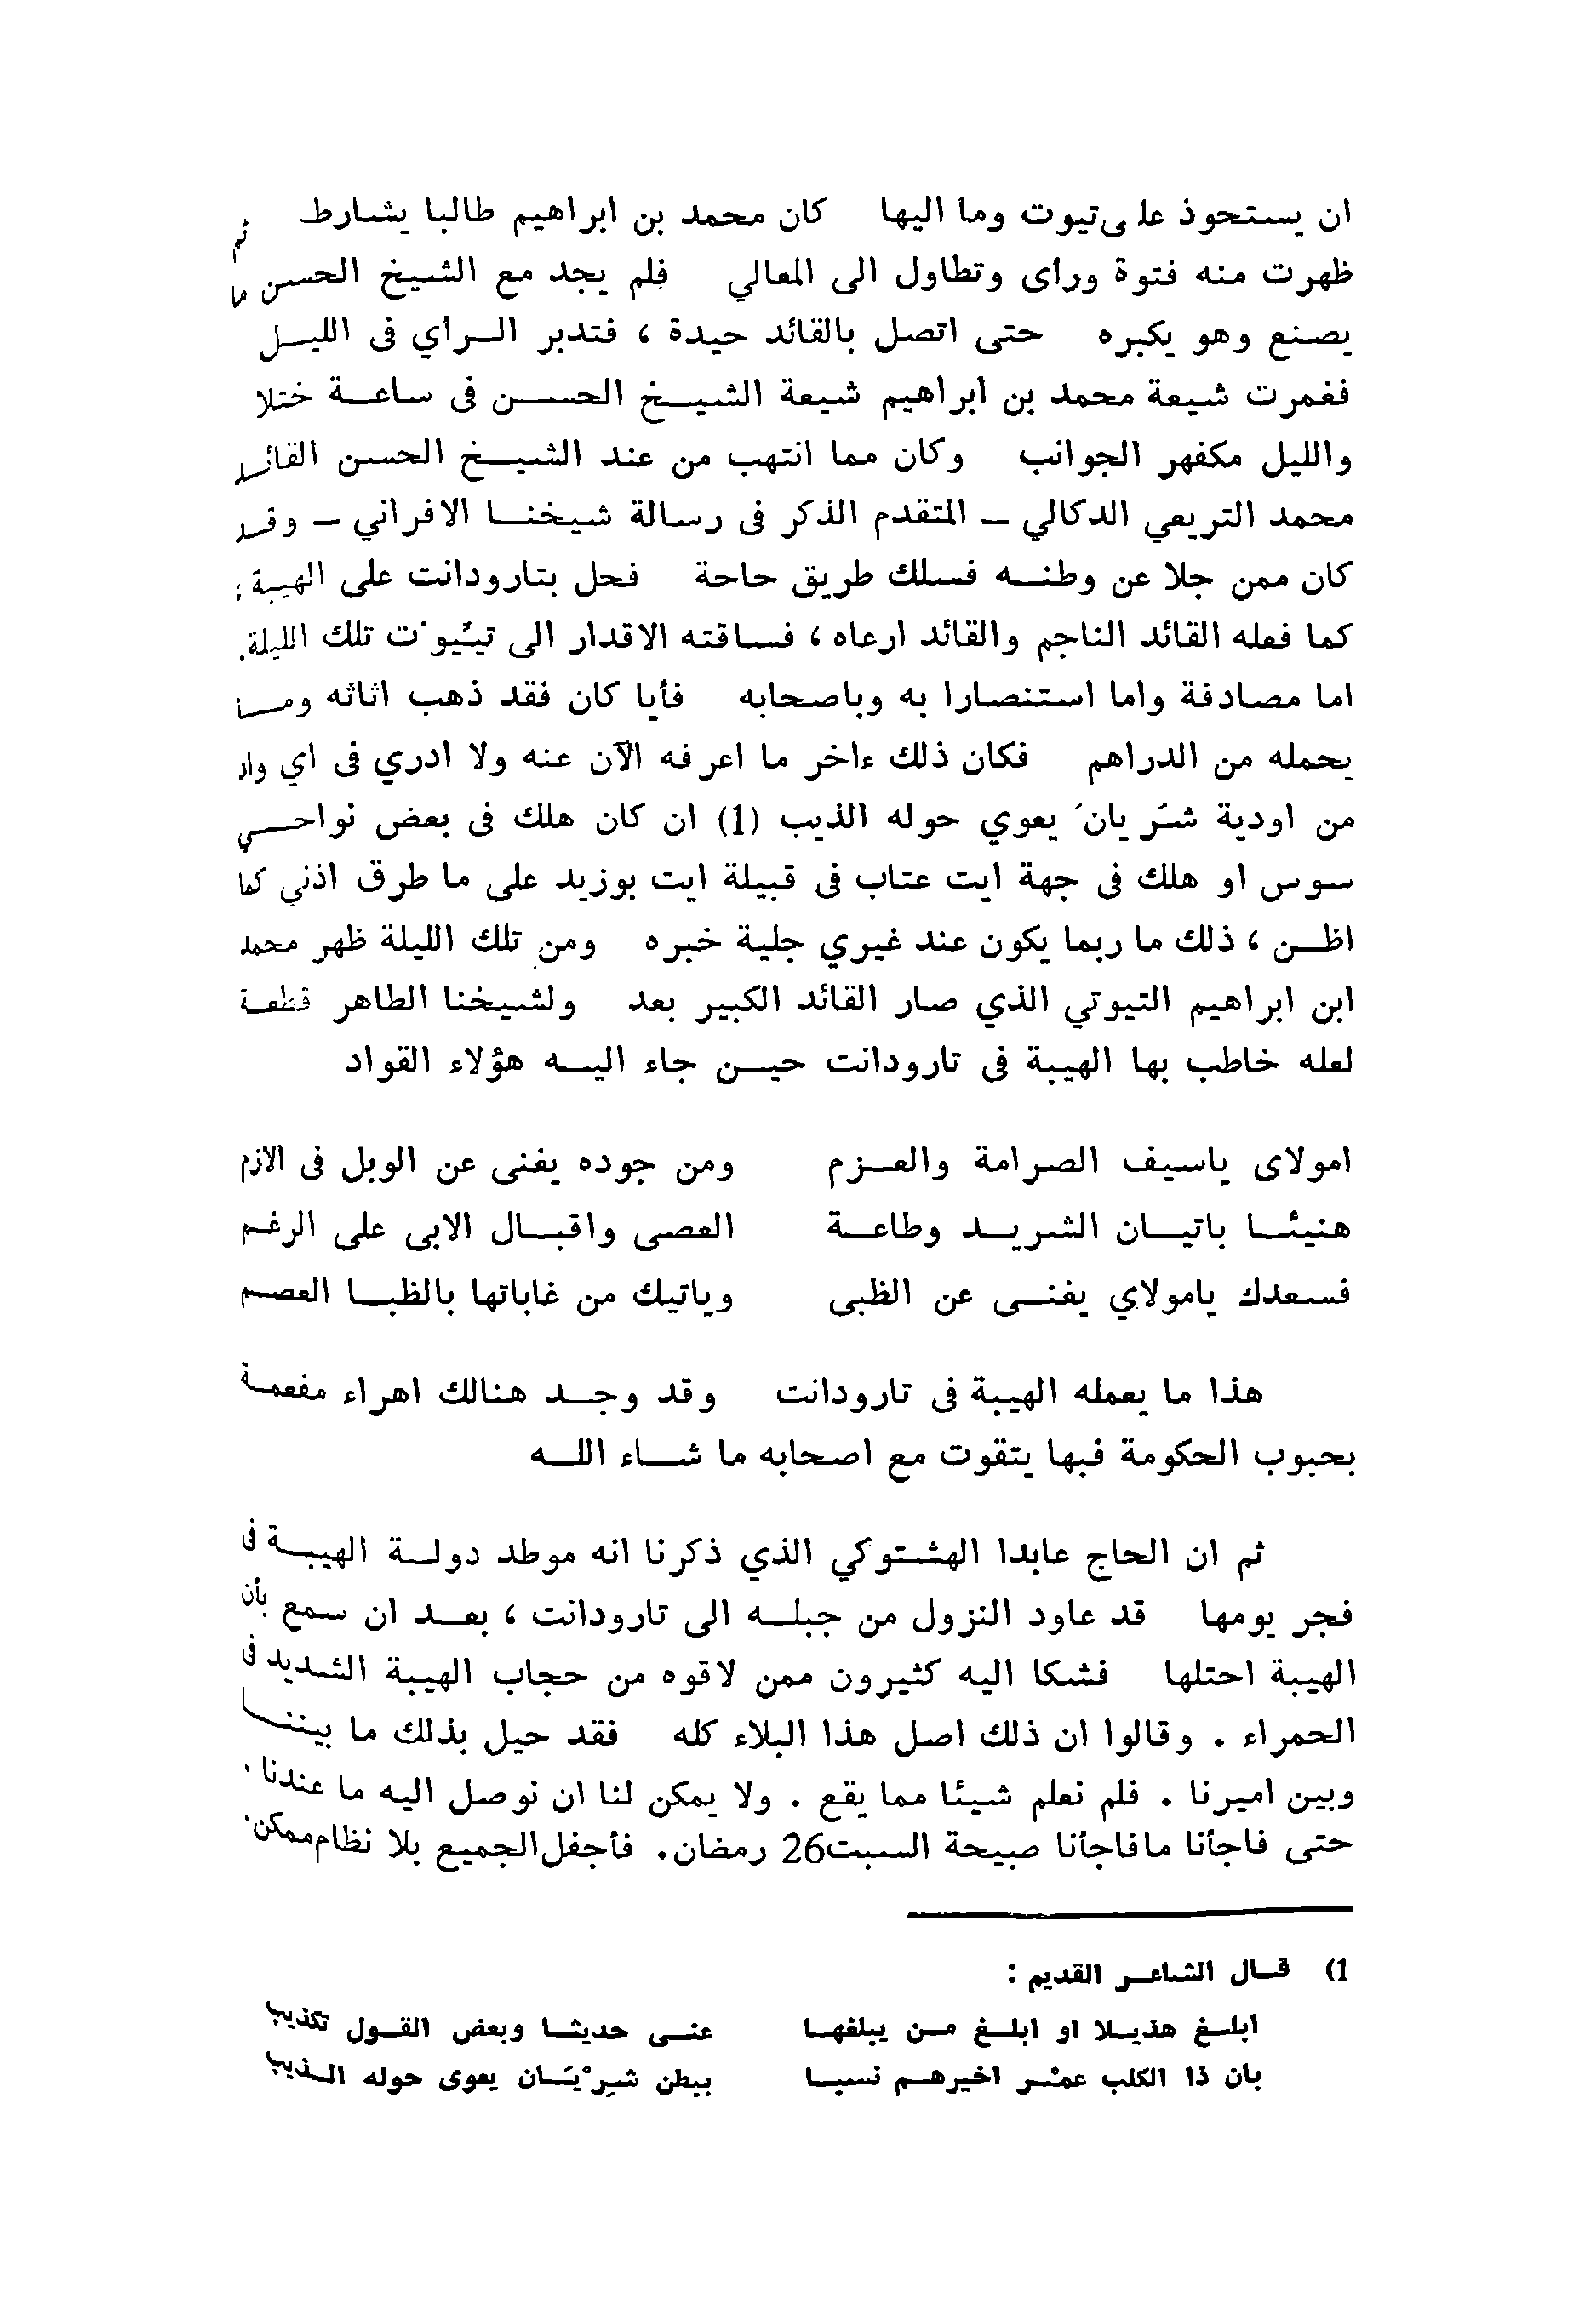 ان يستحوذ على تيوت وما اليها كان محمد بن ابراهيم طالبا يشارط ثم
ظهرت منه فتوة ورأى وتطاول الى المعالي فلم يجد مع الشيخ الحسن ما
يصنع وهو يكبره حتى اتصل بالقائد حيدة ، فتدبر الرأي فى الليل
فغمرت شيعة محمد بن ابراهيم شيعة الشيخ الحسن فى ساعة ختلا
والليل مكفهر الجوانب وكان مما انتهب من عند الشيخ الحسن القائد
محمد التريعي الدكالي – المتقدم الذكر فى رسالة شيخنا الافراني – وقد
كان ممن جلا عن وطنه فسلك طريق حاحة فحل بتارودانت على الهيبة ;
كما فعله القائد الناجم والقائد ارعاه ، فساقته الاقدار الى تيُيوْت تلك الليلة.
اما مصادفة واما استنصارا به وباصحابه فأيا كان فقد ذهب اثاثه وما
يحمله من الدراهم فكان ذلك ءاخر ما اعرفه الآن عنه ولا ادري فى اي واد
من اودية شَريانَ يعوي حوله الذيب (1) ان كان هلك فى بعض نواحي
سوس او هلك فى جهة ايت عتاب فى قبيلة ايت بوزيد على ما طرق اذني كما
اظن ، ذلك ما ربما يكون عند غيري جلية خبره ومن تلك الليلة ظهر محمد
ابن ابراهيم التيوتي الذي صار القائد الكبير بعد ولشيخنا الطاهر قطعة
لعله خاطب بها الهيبة فى تارودانت حين جاء اليه هؤلاء القواد
امولاى ياسيف الصرامة والعزم ومن جوده يغنى عن الوبل فى الازم
هنيئا باتيان الشريد وطاعة العصى واقبال الابى على الرغم
فسعدك يامولاي يغنى عن الظبى وياتيك من غاباتها بالظبا العصم
هذا ما يعمله الهيبة فى تارودانت وقد وجد هنالك اهراء مفعمة
بحبوب الحكومة فبها يتقوت مع اصحابه ما شاء الله
ثم ان الحاج عابدا الهشتوكي الذي ذكرنا انه موطد دولة الهيبة فى
فجر يومها قد عاود النزول من جبله الى تارودانت ، بعد ان سمع بأن
الهيبة احتلها فشكا اليه كثيرون ممن لاقوه من حجاب الهيبة الشديد فى
الحمراء . وقالوا ان ذلك اصل هذا البلاء كله فقد حيل بذلك ما بيننا
وبين اميرنا . فلم نعلم شيئا مما يقع . ولا يمكن لنا ان نوصل اليه ما عندنا .
حتى فاجأنا مافاجأنا صبيحة السبت 26 رمضان. فأجفل الجميع بلا نظام ممكن.
1) قال الشاعر القديم :
ابلغ هذيلا او ابلغ من يبلغها عنى حديثا وبعض القول تكذيب
بان ذا الكلب عمْر اخيرهم نسبا ببطن شِرْيَان يعوى حوله الذيب